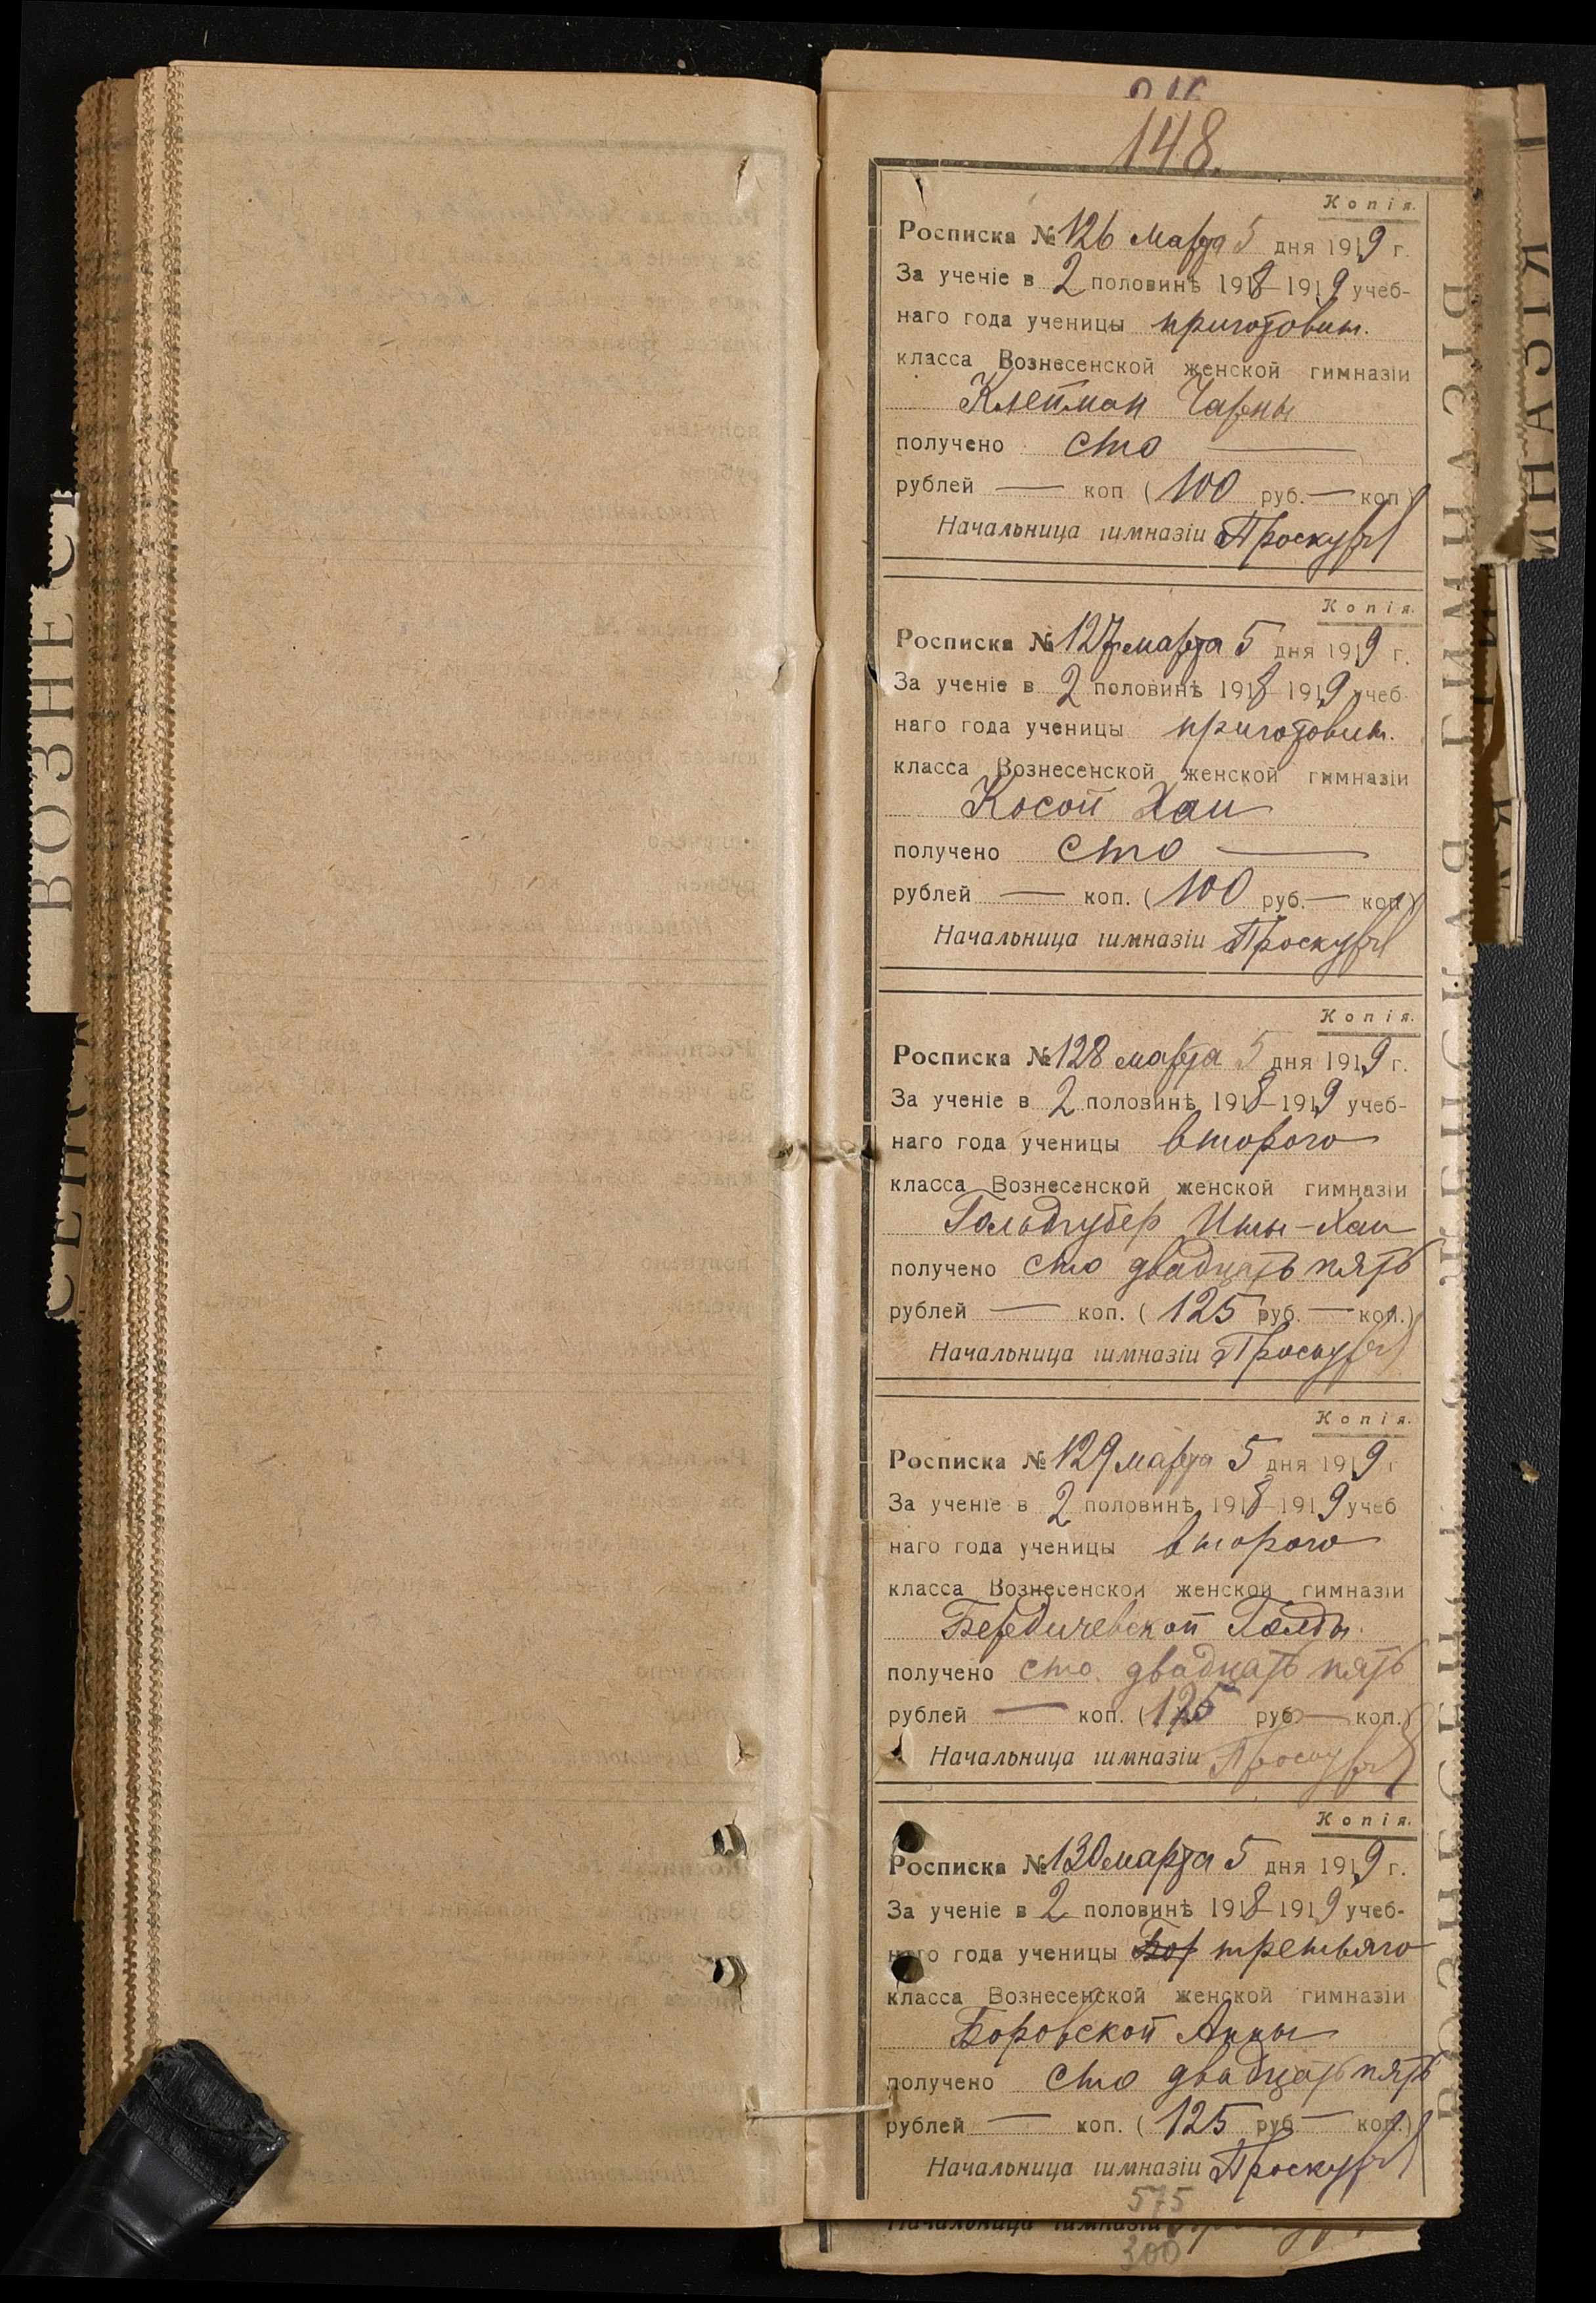 148.
Копія.
Росписка № 126 марта 5 дня 1919 г.
За ученіе в 2 половинѣ 1918-1919 учеб-
наго года ученицы приготовит.
класса Вознесенской женской гимназіи
Клейман Чарны
получено сто —
рублей — коп (100 руб. — коп)
Начальница гимназіи
Копія.
Росписка № 127 марта 5 дня 1919 г.
За ученіе в 2 половинѣ 1918-1919 учеб-
наго года ученицы приготовит.
класса Вознесенской женской гимназіи
Косой Хаи
получено сто —
рублей — коп. (100 руб. — коп)
Начальница гимназіи
Копія.
Росписка № 128 марта 5 дня 1919 г.
За ученіе в 2 половинѣ 1918-1919 учеб-
наго года ученицы второго
класса Вознесенской женской гимназіи
Гольдгубер Иты-Хаи
получено сто двадцать пять
рублей — коп. (125 руб. — коп.)
Начальница гимназіи
Копія.
Росписка № 129 марта 5 дня 1919 г
За ученіе в 2 половинѣ 1918-1919 учеб
наго года ученицы второго
класса Вознесенской женской гимназіи
Бердичевской Голды.
получено сто двадцать пять
рублей — коп. (125 руб — коп.)
Начальница гимназіи
Копія.
Росписка № 130 марта 5 дня 1919 г.
За ученіе в 2 половинѣ 1918-1919 учеб-
наго года ученицы Бор третьяго
класса Вознесенской женской гимназіи
Боровской Анны
получено сто двадцать пять
рублей — коп. (125 руб — коп.)
Начальница гимназіи
575
Начальница гимназіи
300
ВОЗНЕС